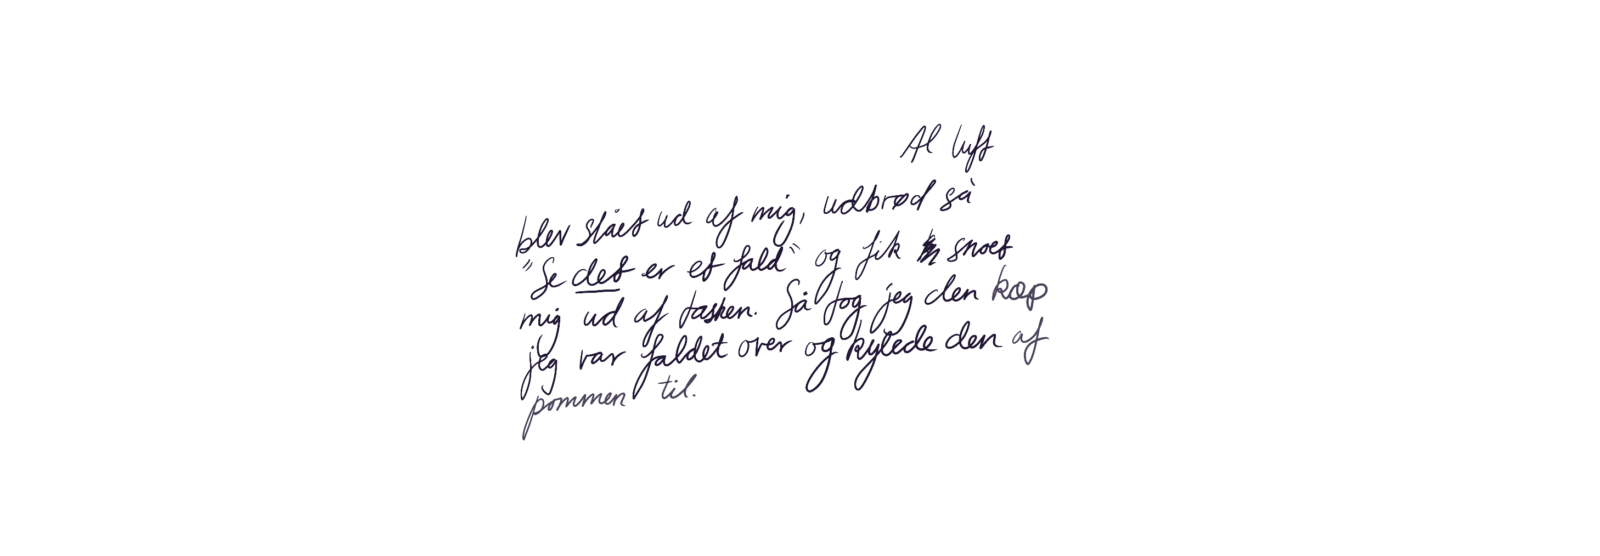 Al luft
blev slået ud af mig, udbrød så
"Se det er et fald" og fik snoet
mig ud af tasken. Så tog jeg den kæp
jeg var faldet over og kylede den af
pommen til.